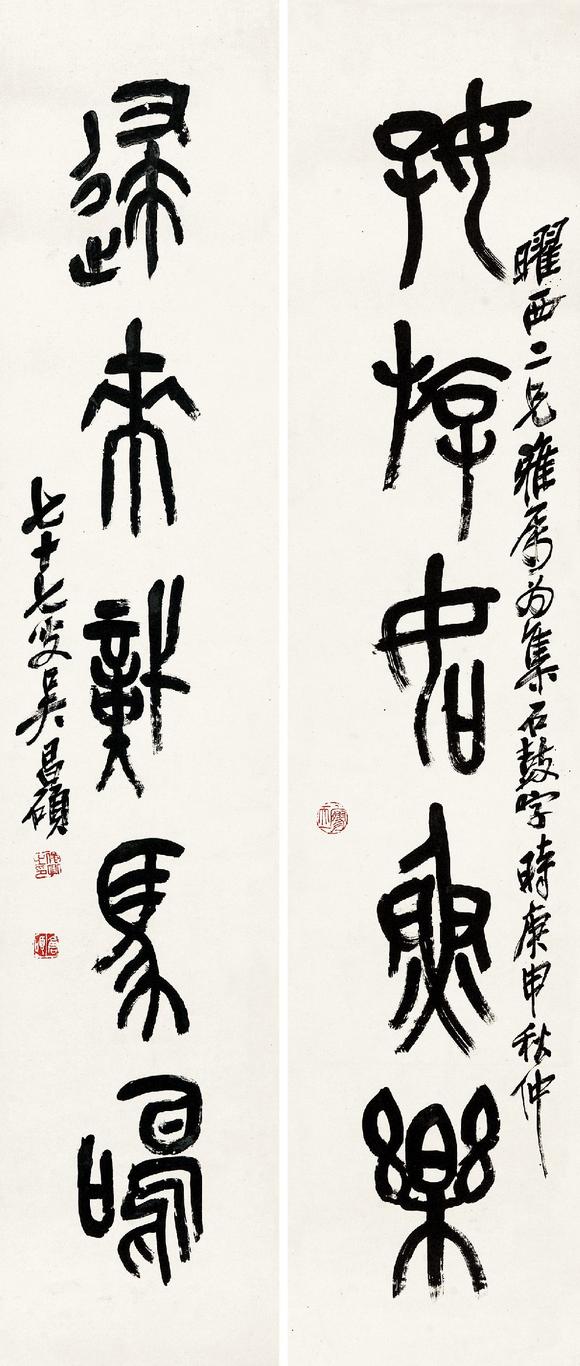 曜西二兄雅屬為集石鼓字時庚申秋仲
好斿如魚樂
歸來馬鳴
七十七叟吳昌碩